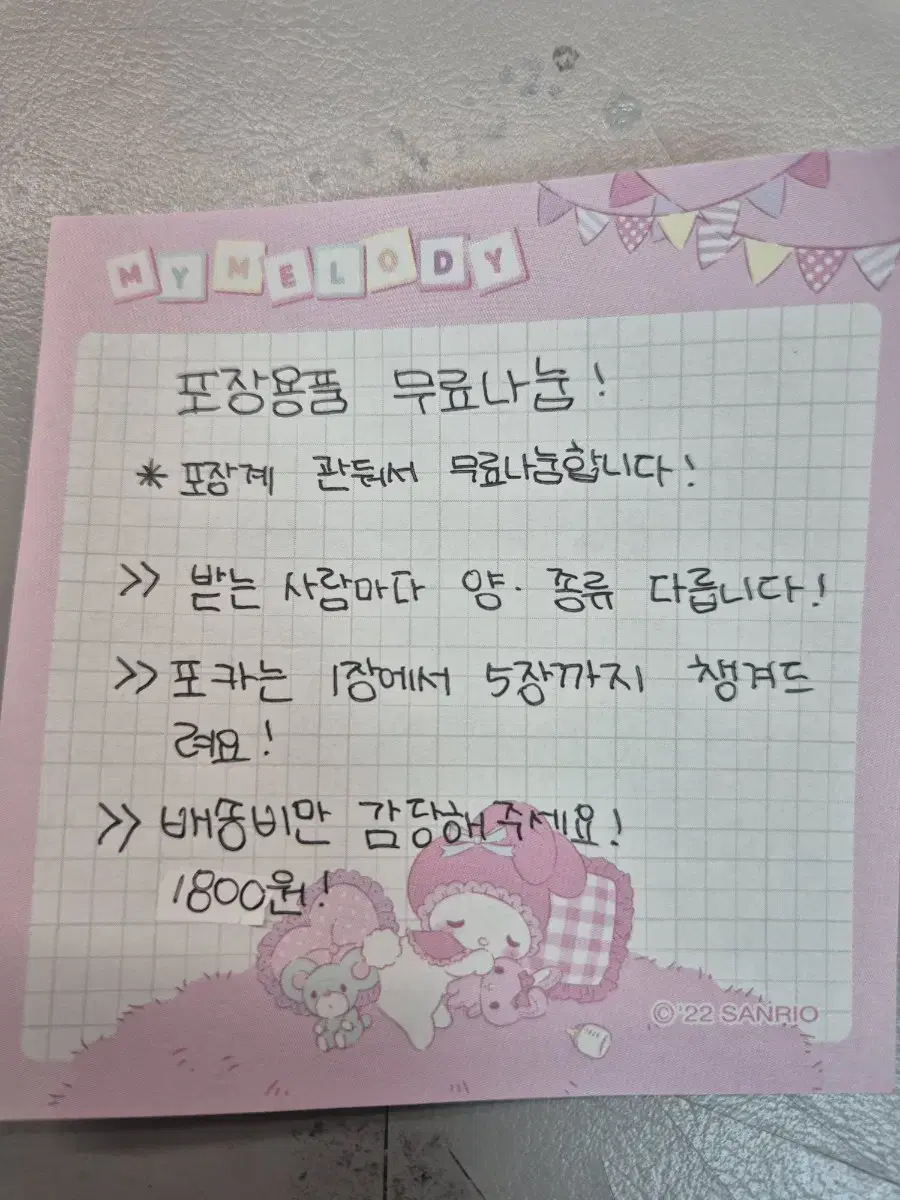 MY MELODY
포장용품 무료나눔!
* 포장계 관둬서 무료나눔합니다!
>> 받는 사람마다 양· 종류 다릅니다!
>> 포카는 1장에서 5장까지 챙겨드
려요!
>> 배송비만 감당해주세요!
1800원!
©'22 SANRIO